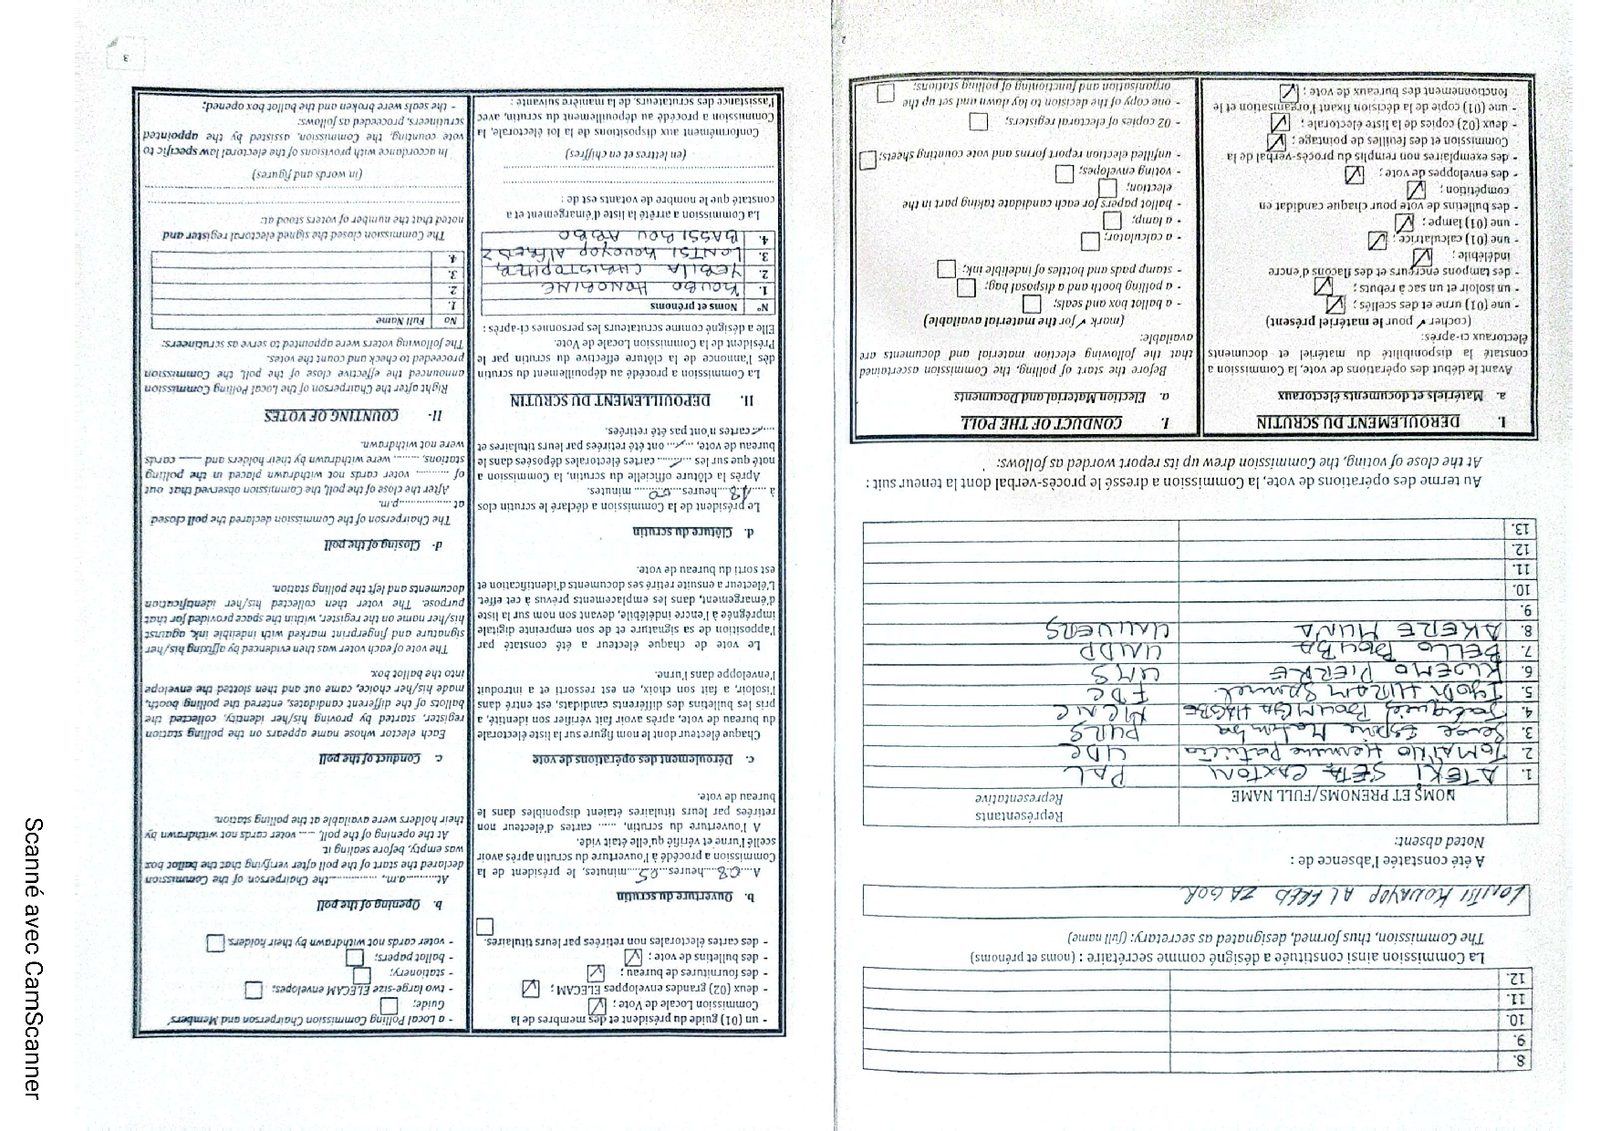 8.
9.
10.
11.
12.
La Commission ainsi constituée a désigné comme secrétaire : (noms et prénoms)
The Commission, thus formed, designated as secretary: (full name)
LONTSI KOUAYOP ALFRED ZAGOR
A été constatée l'absence de :
Noted absent:
NOMS ET PRENOMS/FULL NAME
Représentants
Representative
1. ATEKI SETA CAXTON PAL
2. TOMAINO Hermine Patricia UDC
3. Serge Espoir Matomba PURS
4. Jacques BOUHGA HAGBE MCNC
5. Iyodi HIRAM Samuel FDC
6. KWEMO PIERRE UMS
7. BELLO BOUBA UNDP
8. AKERE MUNA UNIVERS
9.
10.
11.
12.
13.
Au terme des opérations de vote, la Commission a dressé le procès-verbal dont la teneur suit :
At the close of voting, the Commission drew up its report worded as follows:
I. DEROULEMENT DU SCRUTIN
a. Matériels et documents électoraux
Avant le début des opérations de vote, la Commission a
constaté la disponibilité du matériel et documents
électoraux ci-après:
(cocher ✓ pour le matériel présent)
- une (01) urne et des scellés ; ☑
- un isoloir et un sac à rebuts ; ☑
- des tampons encreurs et des flacons d'encre
indélébile ; ☑
- une (01) calculatrice ; ☑
- une (01) lampe ; ☑
- des bulletins de vote pour chaque candidat en
compétition ; ☑
- des enveloppes de vote ; ☑
- des exemplaires non remplis du procès-verbal de la
Commission et des feuilles de pointage ; ☑
- deux (02) copies de la liste électorale ; ☑
- une (01) copie de la décision fixant l'organisation et le
fonctionnement des bureaux de vote ; ☑
I. CONDUCT OF THE POLL
a. Election Material and Documents
Before the start of polling, the Commission ascertained
that the following election material and documents are
available:
(mark ✓ for the material available)
- a ballot box and seals; ☐
- a polling booth and a disposal bag; ☐
- stamp pads and bottles of indelible ink; ☐
- a calculator; ☐
- a lamp; ☐
- ballot papers for each candidate taking part in the
election; ☐
- voting envelopes; ☐
- unfilled election report forms and vote counting sheets; ☐
- 02 copies of electoral registers; ☐
- one copy of the decision to lay down and set up the
organisation and functioning of polling stations; ☐
2
- un (01) guide du président et des membres de la
Commission Locale de Vote ; ☑
- deux (02) grandes enveloppes ELECAM ; ☑
- des fournitures de bureau ; ☑
- des bulletins de vote ; ☑
- des cartes électorales non retirées par leurs titulaires. ☐
b. Ouverture du scrutin
A...08...heures...05...minutes, le président de la
Commission a procédé à l'ouverture du scrutin après avoir
scellé l'urne et vérifié qu'elle était vide.
A l'ouverture du scrutin, ...... cartes d'électeur non
retirées par leurs titulaires étaient disponibles dans le
bureau de vote.
c. Déroulement des opérations de vote
Chaque électeur dont le nom figure sur la liste électorale
du bureau de vote, après avoir fait vérifier son identité, a
pris les bulletins des différents candidats, est entré dans
l'isoloir, a fait son choix, en est ressorti et a introduit
l'enveloppe dans l'urne.
Le vote de chaque électeur a été constaté par
l'apposition de sa signature et de son empreinte digitale
imprégnée à l'encre indélébile, devant son nom sur la liste
d'émargement, dans les emplacements prévus à cet effet.
L'électeur a ensuite retiré ses documents d'identification et
est sorti du bureau de vote.
d. Clôture du scrutin
Le président de la Commission a déclaré le scrutin clos
à ...18...heures...00...minutes.
Après la clôture officielle du scrutin, la Commission a
noté que sur les ...../..... cartes électorales déposées dans le
bureau de vote, .../... ont été retirées par leurs titulaires et
.../...cartes n'ont pas été retirées.
II. DEPOUILLEMENT DU SCRUTIN
La Commission a procédé au dépouillement du scrutin
dès l'annonce de la clôture effective du scrutin par le
Président de la Commission Locale de Vote.
Elle a désigné comme scrutateurs les personnes ci-après :
N° Noms et prénoms
1. KOUBO HONORINE
2. YEBILA CHRISTOPHER
3. LONTSI KOUAYOP ALFRED Z
4. BASSIROU ABBO
La Commission a arrêté la liste d'émargement et a
constaté que le nombre de votants est de :
(en lettres et en chiffres)
Conformément aux dispositions de la loi électorale, la
Commission a procédé au dépouillement du scrutin, avec
l'assistance des scrutateurs, de la manière suivante :
- a Local Polling Commission Chairperson and Members'
Guide; ☐
- two large-size ELECAM envelopes; ☐
- stationery; ☐
- ballot papers; ☐
- voter cards not withdrawn by their holders. ☐
b. Opening of the poll
At..........a.m, ..............the Chairperson of the Commission
declared the start of the poll after verifying that the ballot box
was empty, before sealing it.
At the opening of the poll, .... voter cards not withdrawn by
their holders were available at the polling station.
c. Conduct of the poll
Each elector whose name appears on the polling station
register, started by proving his/her identity, collected the
ballots of the different candidates, entered the polling booth,
made his/her choice, came out and then slotted the envelope
into the ballot box.
The vote of each voter was then evidenced by affixing his/her
signature and fingerprint marked with indelible ink, against
his/her name on the register, within the space provided for that
purpose. The voter then collected his/her identification
documents and left the polling station.
d- Closing of the poll
The Chairperson of the Commission declared the poll closed
at ..................p.m.
After the close of the poll, the Commission observed that out
of ......... voter cards not withdrawn placed in the polling
stations, ........ were withdrawn by their holders and ...... cards
were not withdrawn.
II- COUNTING OF VOTES
Right after the Chairperson of the Local Polling Commission
announced the effective close of the poll, the Commission
proceeded to check and count the votes.
The following voters were appointed to serve as scrutineers:
No Full Name
1.
2.
3.
4.
The Commission closed the signed electoral register and
noted that the number of voters stood at:
(in words and figures)
In accordance with provisions of the electoral law specific to
vote counting, the Commission, assisted by the appointed
scrutineers, proceeded as follows:
- the seals were broken and the ballot box opened;
3
Scanné avec CamScanner